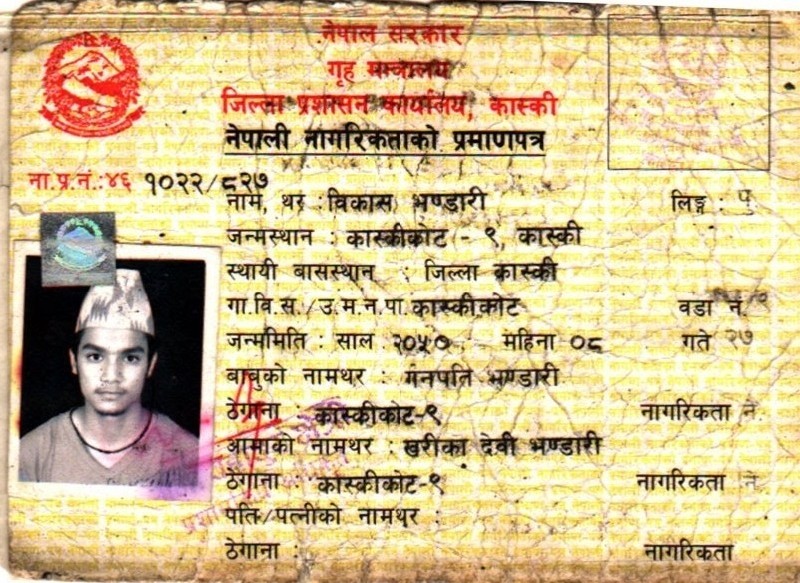 नेपाल सरकार
गृह मन्त्रालय
जिल्ला प्रशासन कार्यालय, कास्की
नेपाली नागरिकताको प्रमाणपत्र
ना.प्र.नं.:४६ १०२२/८२७
नाम, थर : विकास भण्डारी लिङ्ग : पु
जन्मस्थान : कास्कीकोट - ९, कास्की
स्थायी बासस्थान : जिल्ला कास्की
गा.वि.स./उ.म.न.पा. कास्कीकोट वडा नं. ९
जन्ममिति : साल २०५० महिना ०८ गते २७
बाबुको नामथर : गनपति भण्डारी
ठेगाना कास्कीकोट-९ नागरिकता नं.
आमाको नामथर : खरीका देवी भण्डारी
ठेगाना : कास्कीकोट-९ नागरिकता नं.
पति/पत्नीको नामथर :
ठेगाना : नागरिकता